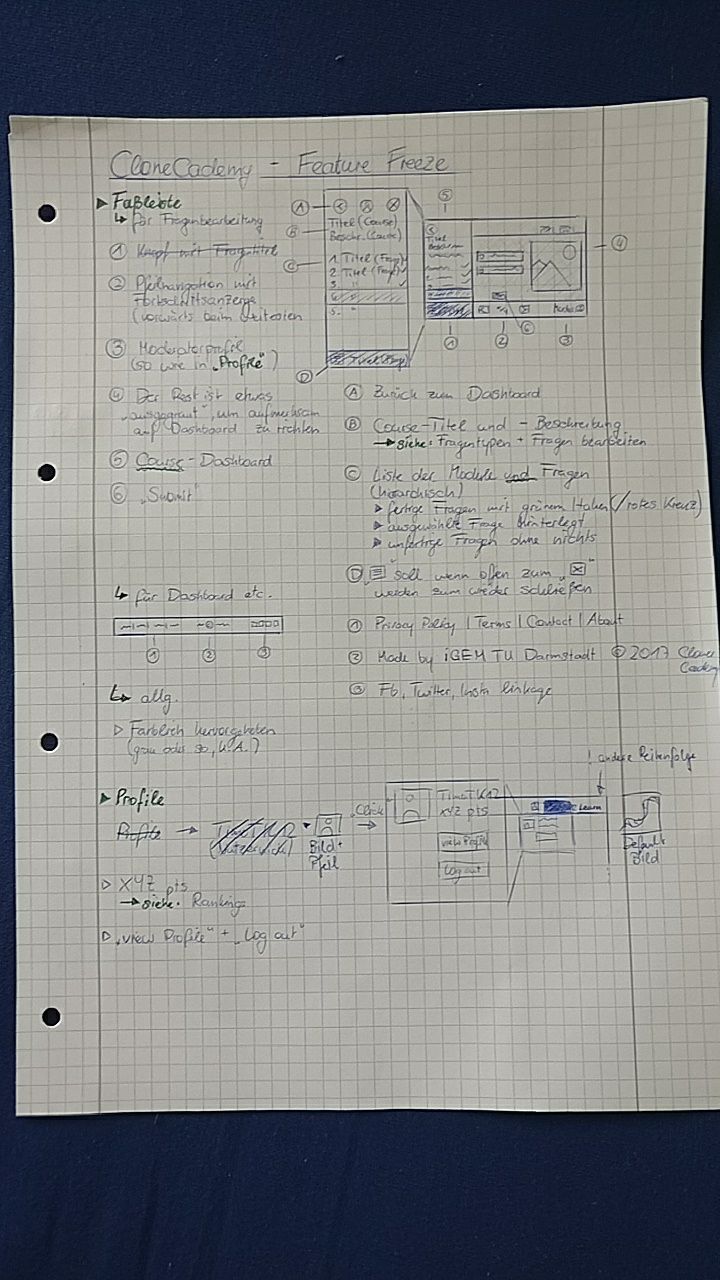 CloneCademy - Feature Freeze
▶ Fußleiste
↳ für Fragenbearbeitung
① Knopf mit Fragetitel
② Pfeilnavigation mit
Fortschrittsanzeige
(vorwärts beim
③ Moderatorprofil
(so wie in „Profile")
④ Der Rest ist etwas
„ausgegraut", um aufmerksam
auf Dashboard zu richten
⑤ Course-Dashboard
⑥ „Submit"
Ⓐ
Ⓑ
Ⓒ
Ⓓ
Titel (Course)
Beschr. (Course)
1. Titel (Frage) ✓
2. Titel (Frage) ✓
3. " ✓
4.
5. "
⑤
Titel
④
① ② ⑥ ③
Ⓐ Zurück zum Dashboard
Ⓑ Course-Titel und -Beschreibung
→ siehe: Fragentypen + Fragen bearbeiten
Ⓒ Liste der Module und Fragen
(hierarchisch)
▶ fertige Fragen mit grünem Haken (/rotes Kreuz)
▶ ausgewählte Frage hinterlegt
▶ unfertige Fragen ohne nichts
Ⓓ „☰" soll wenn offen zum „☒"
werden zum wieder schließen
↳ für Dashboard etc.
① ② ③
① Privacy Policy | Terms | Contact | About
② Made by iGEM TU Darmstadt © 2017 Clone
Cademy
③ Fb, Twitter, Insta linkage
↳ allg.
▷ Farblich hervorgehoben
(grau oder so, k.A.)
! andere Reihenfolge
▶ Profile
Profile →
Bild +
Pfeil
„Click"
→
XYZ pts
view Profile
Log out
Learn
Default
Bild
▷ XYZ pts
→ siehe: Rankings
▷ „view Profile" + „Log out"